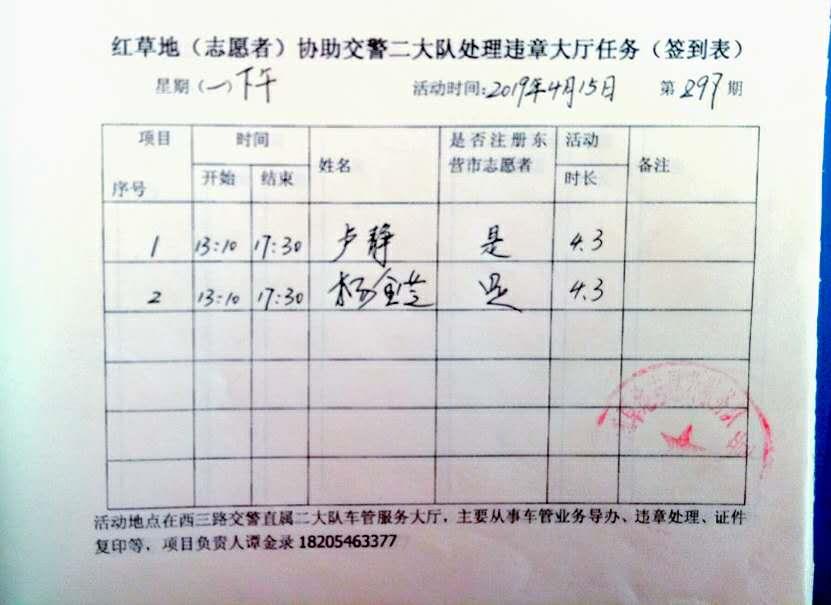 红草地（志愿者）协助交警二大队处理违章大厅任务（签到表）
星期（一）下午 活动时间:2019年4月15日 第297期
项目 时间 姓名 是否注册东营市志愿者 活动时长 备注
序号 开始 结束
1 13:10 17:30 卢静 是 4.3
2 13:10 17:30 杨 是 4.3
活动地点在西三路交警直属二大队车管服务大厅，主要从事车管业务导办、违章处理、证件
复印等，项目负责人谭金录 18205463377